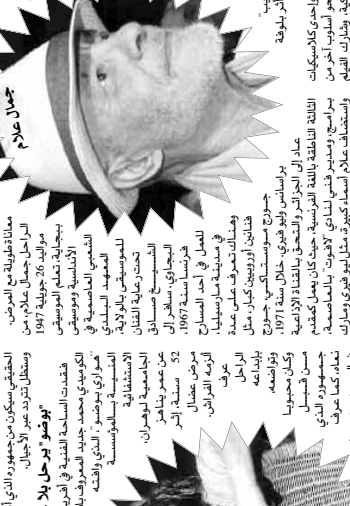 أثر بلوفة
وإحدى كلاسيكيات
نحو أسلوب آخر من
وشارك الفيلم
جمال علام
معاناة طويلة مع المرض.
الراحل جمال علام، من
مواليد 26 جويلية 1947
ببجاية، تعلم الموسيقى
الأندلسية وموسيقى
الشعبي العاصمية في
المعهد البلدي
للموسيقى بالولاية،
تحت رعاية الفنان
الشيخ صادق
البجاوي، سافر إلى
فرنسا سنة 1967،
للعمل في أحد المسارح
في مدينة مارسيليا،
وهناك تعرف على عدة
فنانين أوروبيين كبار، مثل
جورج موستاكي، جورج
براسانس وليو فيري. خلال سنة 1971،
عاد إلى الجزائر والتحق بالقناة الإذاعية
الثالثة الناطقة باللغة الفرنسية، حيث كان يعمل كمقدم
برامج، ومدير فني لنادي "لافوت" بالعاصمة،
واستضاف علام أسماء كبيرة، مثل ليو فيري ومارك
الحقيقي سيكون من جمهوره الذي
وستظل تتردد عبر الأجيال.
"بوضو" يرحل بلا
فقدت الساحة الفنية في
الكوميدي محمد جديد المعروف
"بوضو"، الذي وافته
المنية بالمؤسسة
الاستشفائية
الجامعية لوهران،
عن عمر يناهز
52 سنة، إثر
مرض عضال
ألزمه الفراش.
عرف
الراحل
بإبداعه
وتواضعه،
وكان محبوبا
من قبل
جمهوره الذي
نعاه، كما عرف